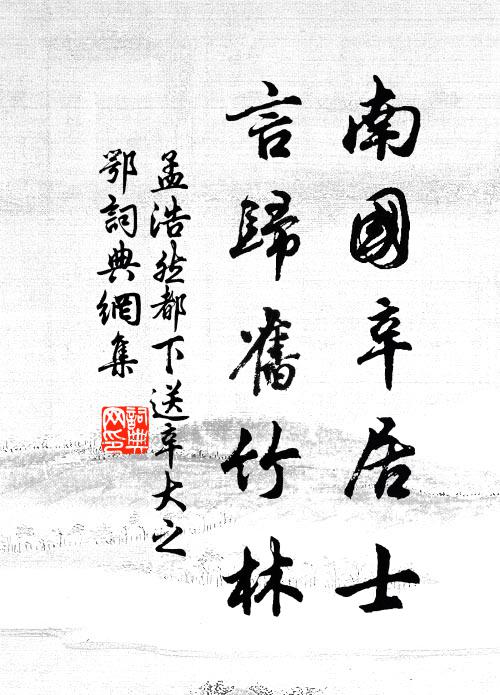 南國辛居士
言歸舊竹林
孟浩然都下送辛大之
鄂詞典網集
詞典
网印